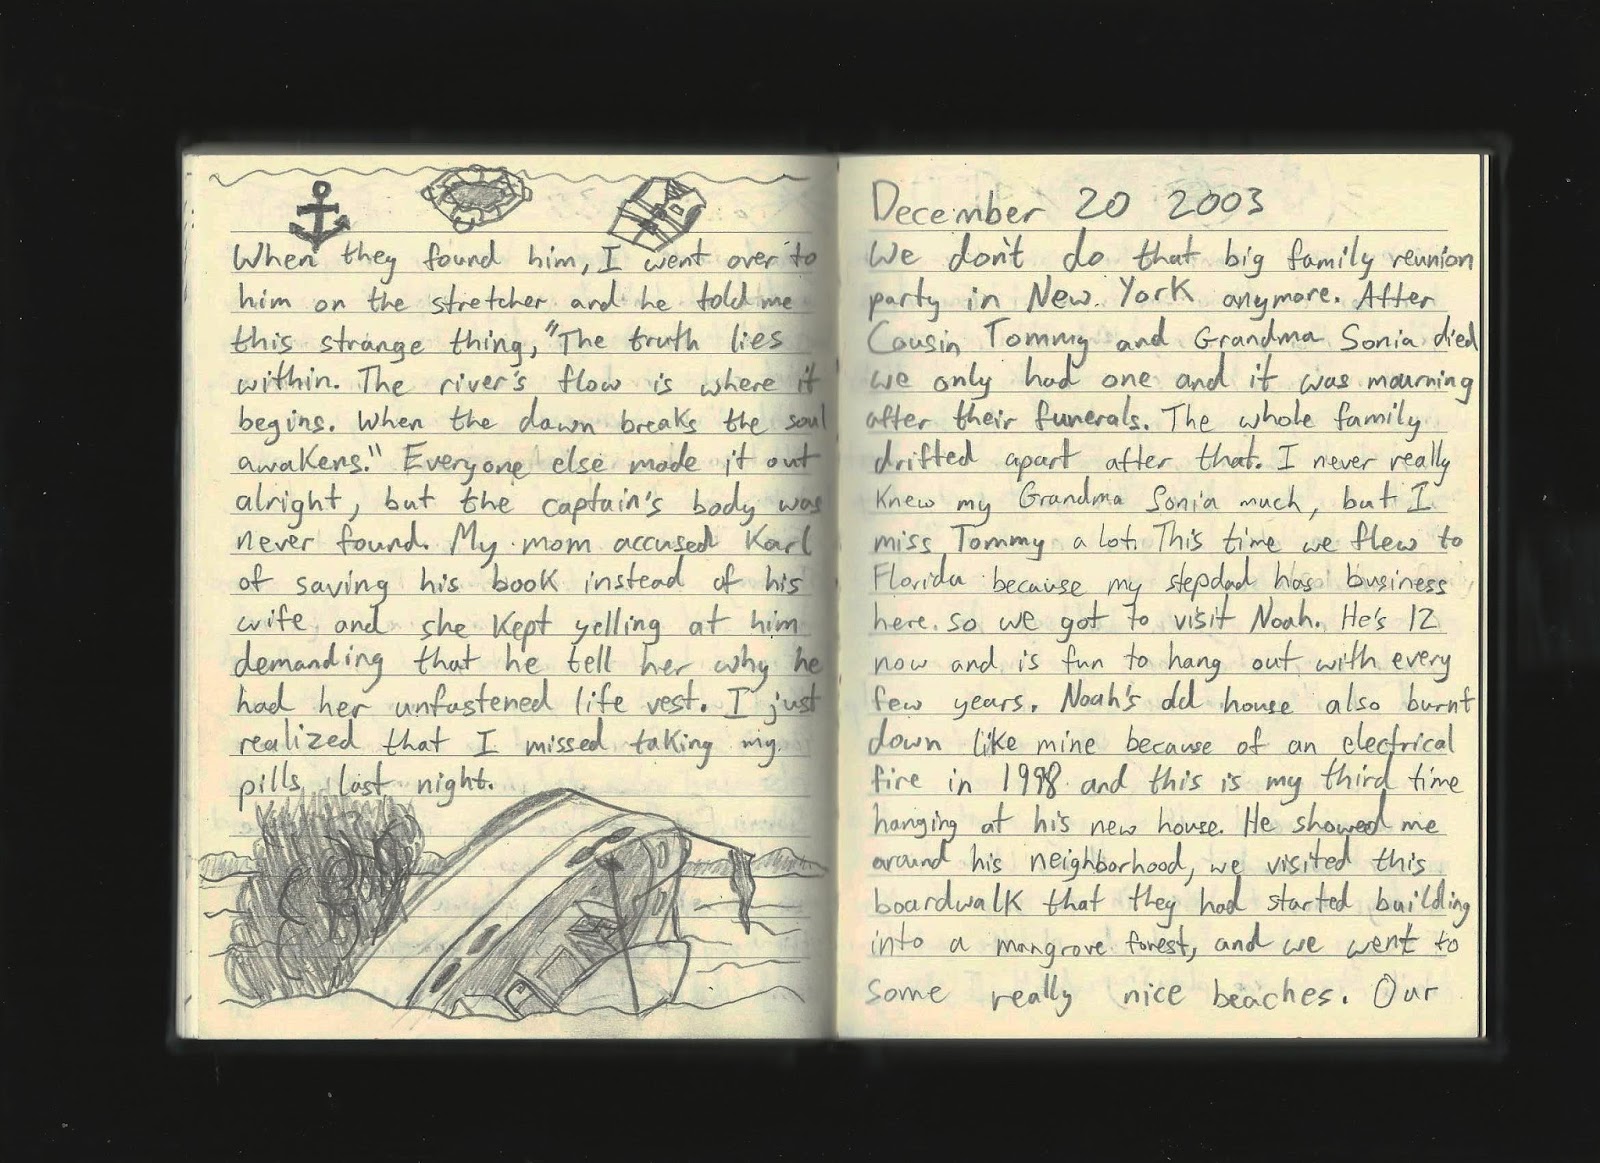 When they found him, I went over to
him on the stretcher and he told me
this strange thing, "The truth lies
within. The river's flow is where it
begins. When the dawn breaks the soul
awakens." Everyone else made it out
alright, but the captain's body was
never found. My mom accused Karl
of saving his book instead of his
wife and she kept yelling at him
demanding that he tell her why he
had her unfastened life vest. I just
realized that I missed taking my
pills last night.
December 20 2003
We don't do that big family reunion
party in New York anymore. After
Cousin Tommy and Grandma Sonia died
we only had one and it was mourning
after their funerals. The whole family
drifted apart after that. I never really
knew my Grandma Sonia much, but I
miss Tommy a lot. This time we flew to
Florida because my stepdad has business
here. so we got to visit Noah. He's 12
now and is fun to hang out with every
few years. Noah's old house also burnt
down like mine because of an electrical
fire in 1998 and this is my third time
hanging at his new house. He showed me
around his neighborhood, we visited this
boardwalk that they had started building
into a mangrove forest, and we went to
some really nice beaches. Our